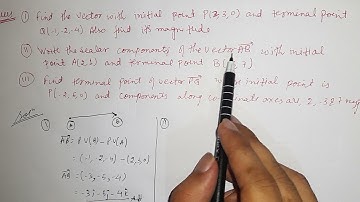 ① Find the vector with initial point P(2,3,0) and terminal point
Q(-1,-2,-4) Also find its magnitude
② Write the scalar components of the vector AB with initial
point A(2,1) and terminal point B(, 7)
③ Find terminal point of vector PQ whose initial point is
P(-2,5,0) and components along coordinate axes are, 2, -3 & 7
Soln
A B
AB = P.V(B) - P.V(A)
= (-1, -2, 4) - (2,3,0)
AB = (-3, -5, -4)
= -3i - 5j - 4k